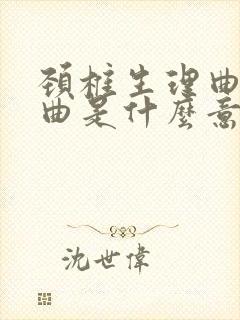 頚椎生理曲
曲是什麼意
沈世偉